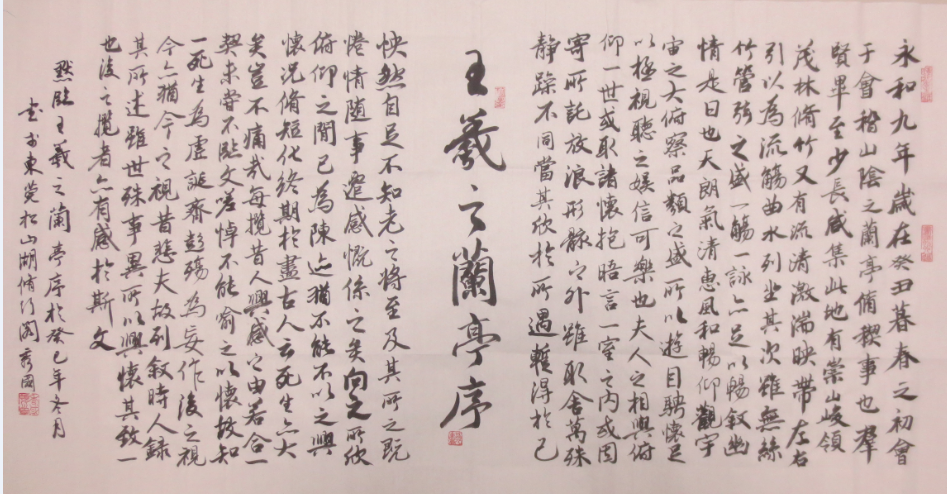 永和九年歲在癸丑暮春之初會
于會稽山陰之蘭亭脩稧事也羣
賢畢至少長咸集此地有崇山峻領
茂林脩竹又有流清激湍映帶左右
引以為流觴曲水列坐其次雖無絲
竹管弦之盛一觴一詠亦足以暢敘幽
情是日也天朗氣清惠風和暢仰觀宇
宙之大俯察品類之盛所以遊目騁懷足
以極視聽之娛信可樂也夫人之相與俯
仰一世或取諸懷抱晤言一室之內或因
寄所託放浪形骸之外雖取舍萬殊
静躁不同當其欣於所遇輒得於己
王羲之蘭亭序
怏然自足不知老之將至及其所之既
惓情隨事遷感慨係之矣向之所欣
俯仰之間已為陳迹猶不能不以之興
懷況脩短化終期於盡古人云死生亦大
矣豈不痛哉每攬昔人興感之由若合一
契未嘗不臨文嗟悼不能喻之以懷故知
一死生為虛誕齊彭殤為妄作後之視
今亦猶今之視昔悲夫故列敘時人錄
其所述雖世殊事異所以興懷其致一
也後之攬者亦有感於斯文
臨王羲之蘭亭序於癸巳年冬月
書於東莞松山湖